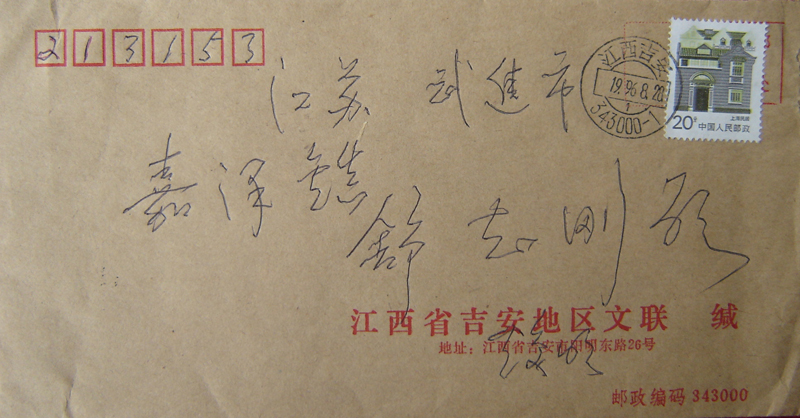 213153
江苏 武进市
嘉泽镇
舒志刚 收
江西吉安
1996.8.20
1
343000-1
上海民居
20分 中国人民邮政
江西省吉安地区文联 缄
地址：江西省吉安市阳明东路26号
邮政编码 343000